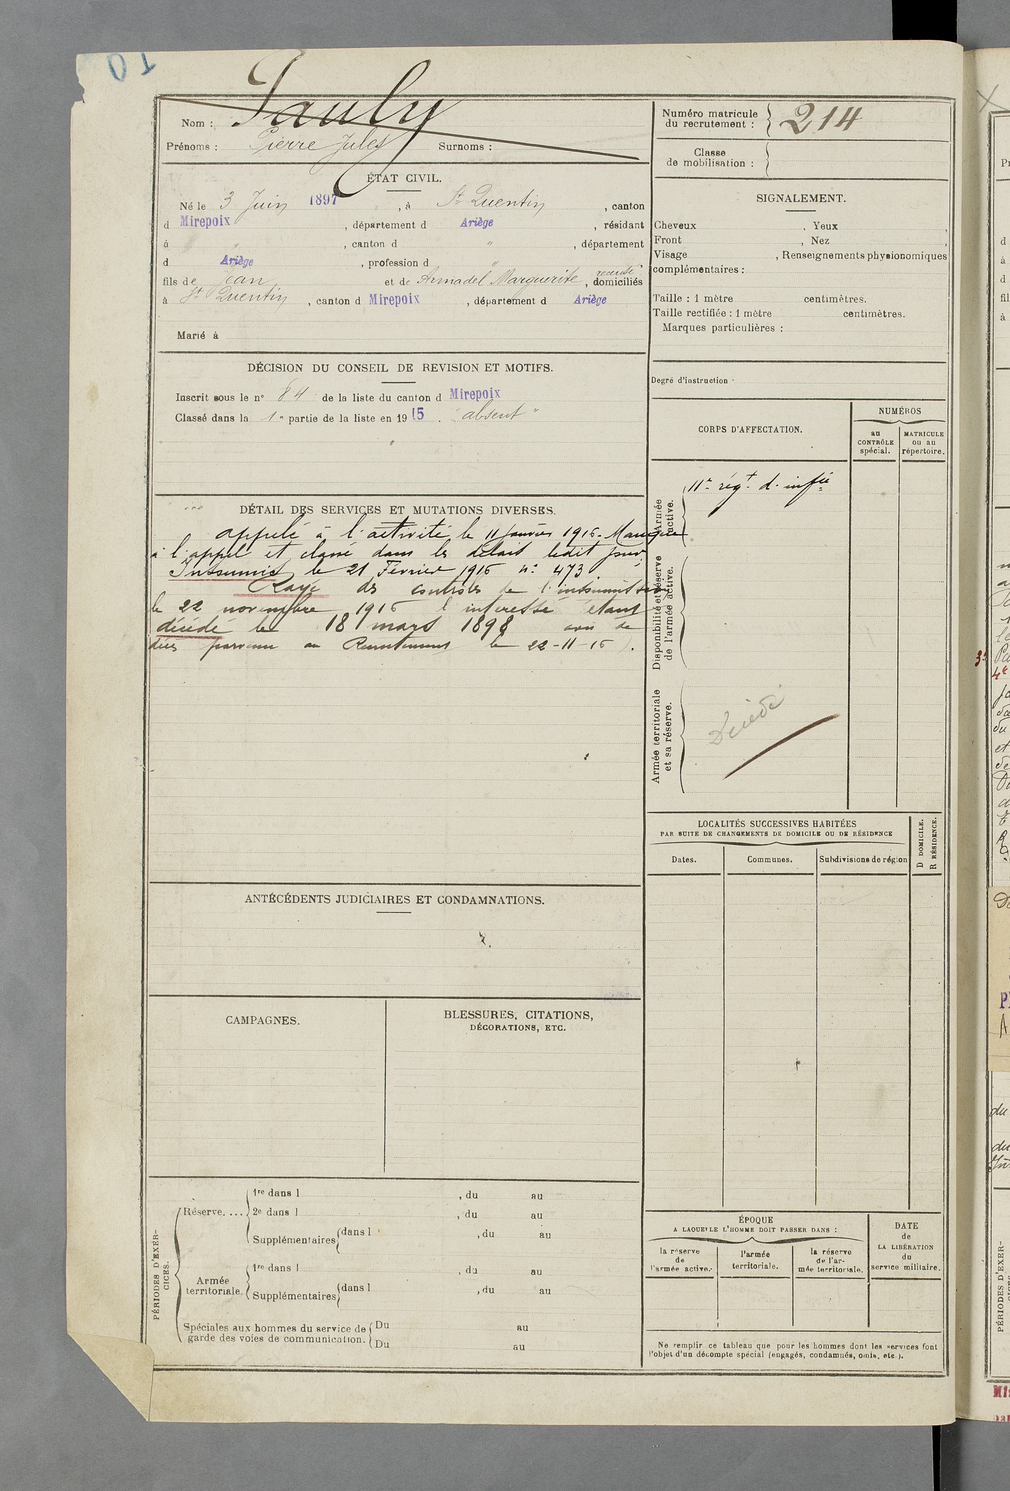 01
Nom : Pauly
Prénoms : Pierre Jules Surnoms :
ÉTAT CIVIL.
Né le 3 Juin 1897, à St Quentin, canton
d Mirepoix, département d Ariège, résidant
à " , canton d " , département
d Ariège, profession d "
fils de Jean et de Marguerite, domiciliés
à St Quentin, canton d Mirepoix, département d Ariège
Marié à
DÉCISION DU CONSEIL DE REVISION ET MOTIFS.
Inscrit sous le n° 84 de la liste du canton d Mirepoix
Classé dans la 1e partie de la liste en 1915. "absent"
DÉTAIL DES SERVICES ET MUTATIONS DIVERSES.
appelé à l'activité le 11 Janvier 1916. Manque
à l'appel et classé dans les délais ledit jour
Insoumis le 21 Février 1916 n° 473
Rayé des contrôles de l'insoumission
le 22 novembre 1916 l'intéressé étant
décédé le 18 mars 1898 avis de
décès parvenu au Recrutement le 22-11-16).
ANTÉCÉDENTS JUDICIAIRES ET CONDAMNATIONS.
CAMPAGNES.
BLESSURES, CITATIONS,
DÉCORATIONS, ETC.
PÉRIODES D'EXERCICES.
Réserve.... 1re dans l , du au
2e dans l , du au
Supplémentaires dans l , du au
Armée territoriale. 1re dans l , du au
Supplémentaires dans l , du au
Spéciales aux hommes du service de garde des voies de communication. Du au
Du au
Numéro matricule
du recrutement : 214
Classe
de mobilisation :
SIGNALEMENT.
Cheveux , Yeux ,
Front , Nez ,
Visage , Renseignements physionomiques
complémentaires :
Taille : 1 mètre centimètres.
Taille rectifiée : 1 mètre centimètres.
Marques particulières :
Degré d'instruction
CORPS D'AFFECTATION.
NUMÉROS
au
CONTRÔLE
spécial.
MATRICULE
ou au
répertoire.
Armée
active.
11e régt d'infie
Disponibilité et réserve
de l'armée active.
Armée territoriale
et sa réserve.
Décédé
LOCALITÉS SUCCESSIVES HABITÉES
PAR SUITE DE CHANGEMENTS DE DOMICILE OU DE RÉSIDENCE
Dates.
Communes.
Subdivisions de région
D DOMICILE.
R RÉSIDENCE.
ÉPOQUE
A LAQUELLE L'HOMME DOIT PASSER DANS :
la réserve
de
l'armée active.
l'armée
territoriale.
la réserve
de l'ar-
mée territoriale.
DATE
de
LA LIBÉRATION
du
service militaire.
Ne remplir ce tableau que pour les hommes dont les services font
l'objet d'un décompte spécial (engagés, condamnés, omis, etc.).
PÉRIODES D'EXER-
CICES.